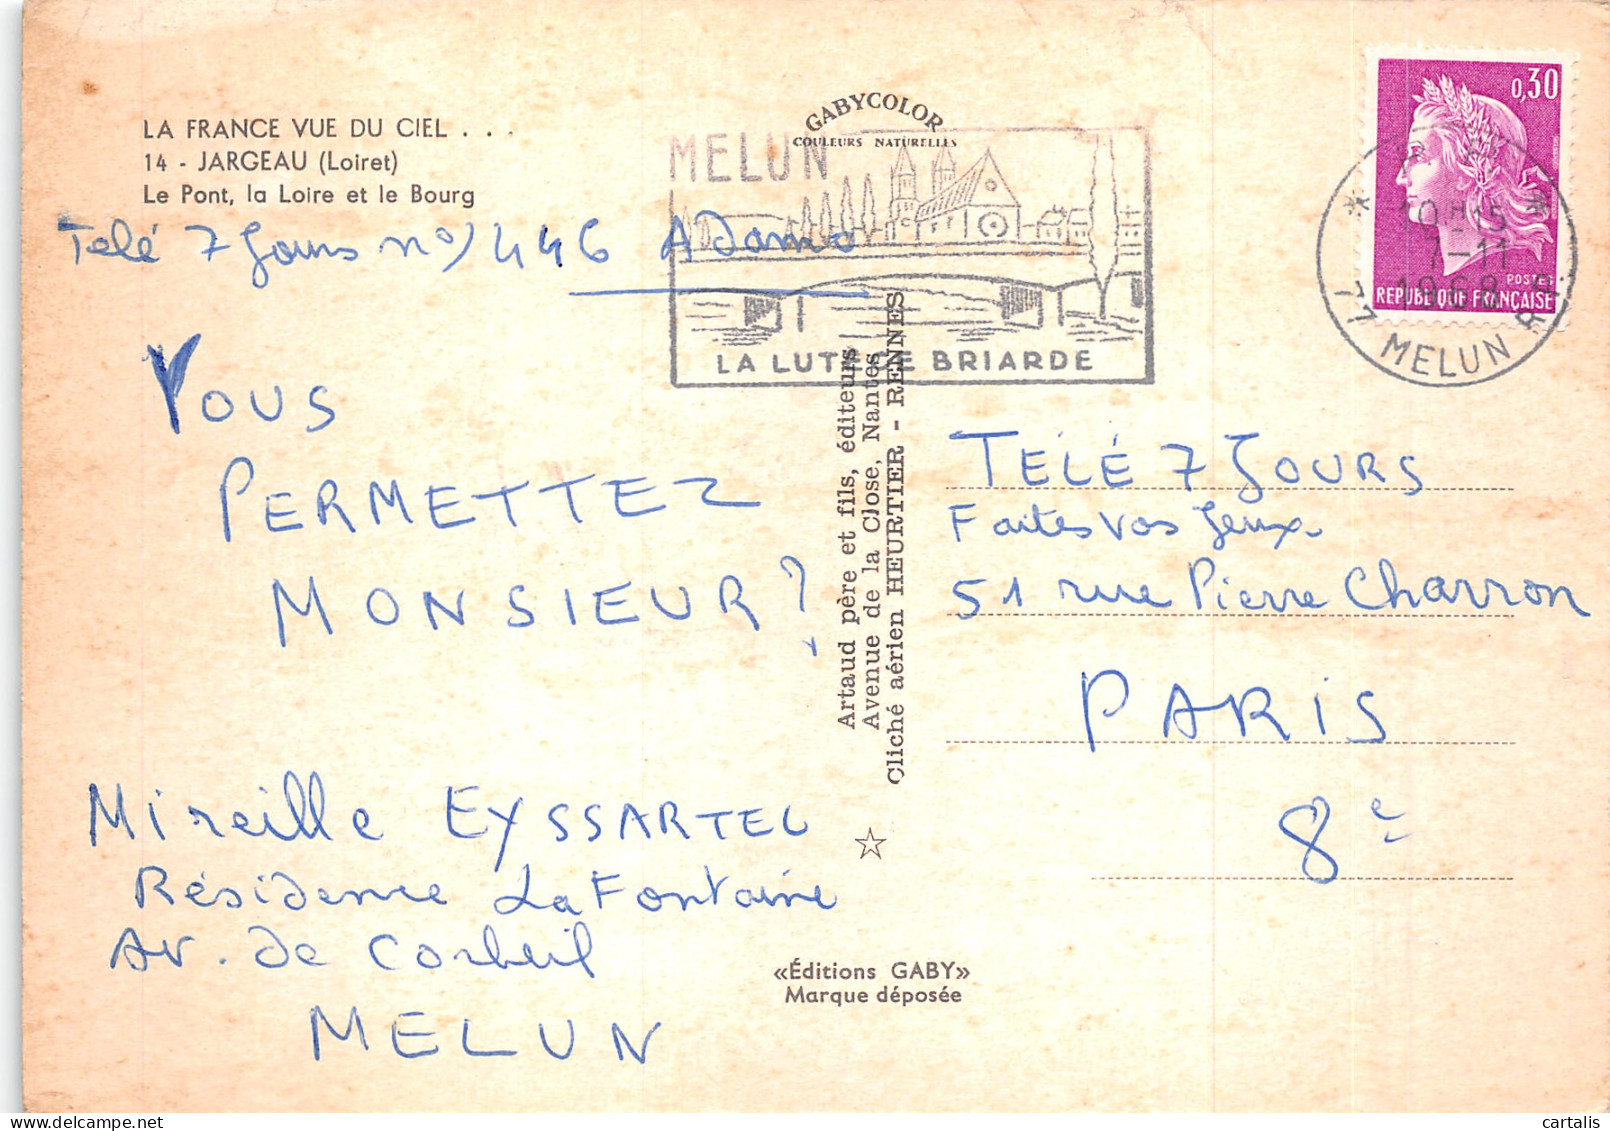 LA FRANCE VUE DU CIEL . . .
14 - JARGEAU (Loiret)
Le Pont, la Loire et le Bourg
Télé 7 Jours no 446 Adamo
VOUS
PERMETTEZ
MONSIEUR ?
Mireille EYSSARTEL
Résidence La Fontaine
Av. de Corbeil
MELUN
GABYCOLOR
COULEURS NATURELLES
MELUN
LA LUTECE BRIARDE
Artaud père et fils, éditeurs
Avenue de la Close, Nantes
Cliché aérien HEURTIER - RENNES
«Éditions GABY»
Marque déposée
0,30
POSTES
REPUBLIQUE FRANÇAISE
7-11
1968
77 MELUN R.P.
TÉLÉ 7 JOURS
Faites vos Jeux.
51 rue Pierre Charron
PARIS
8e
cartalis